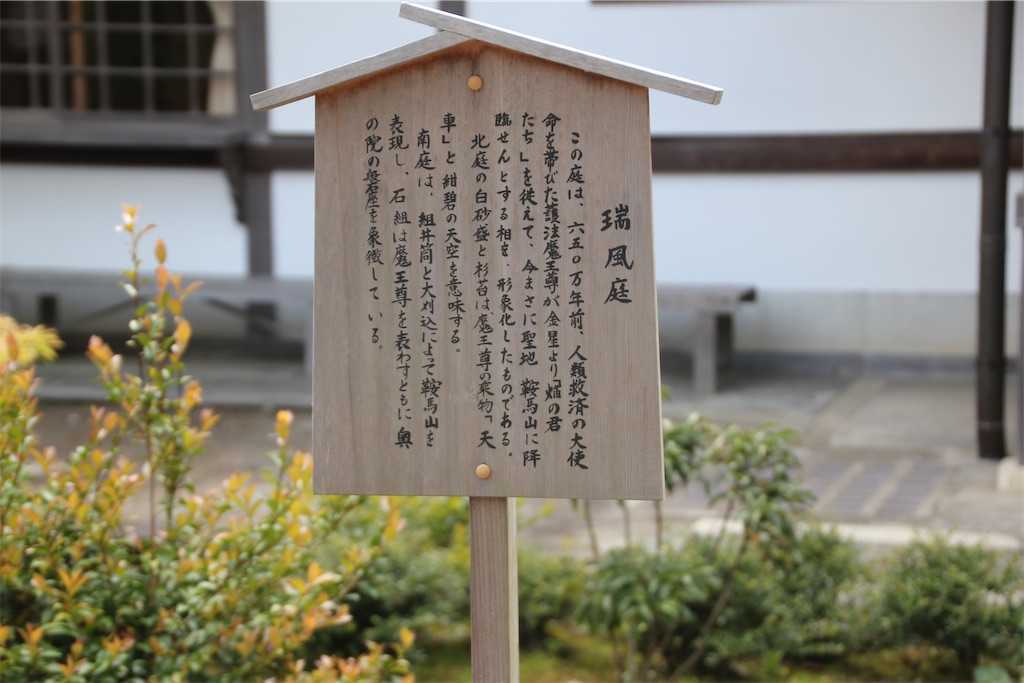 瑞風庭
この庭は、六五〇万年前、人類救済の大使
命を帯びた護法魔王尊が金星より「焔の君
たち」を従えて、今まさに聖地 鞍馬山に降
臨せんとする相を、形象化したものである。
北庭の白砂盛と杉苔は、魔王尊の乗物「天
車」と紺碧の天空を意味する。
南庭は、組井筒と大刈込によって鞍馬山を
表現し、石組は魔王尊を表わすともに奥
の院の磐座を象徴している。